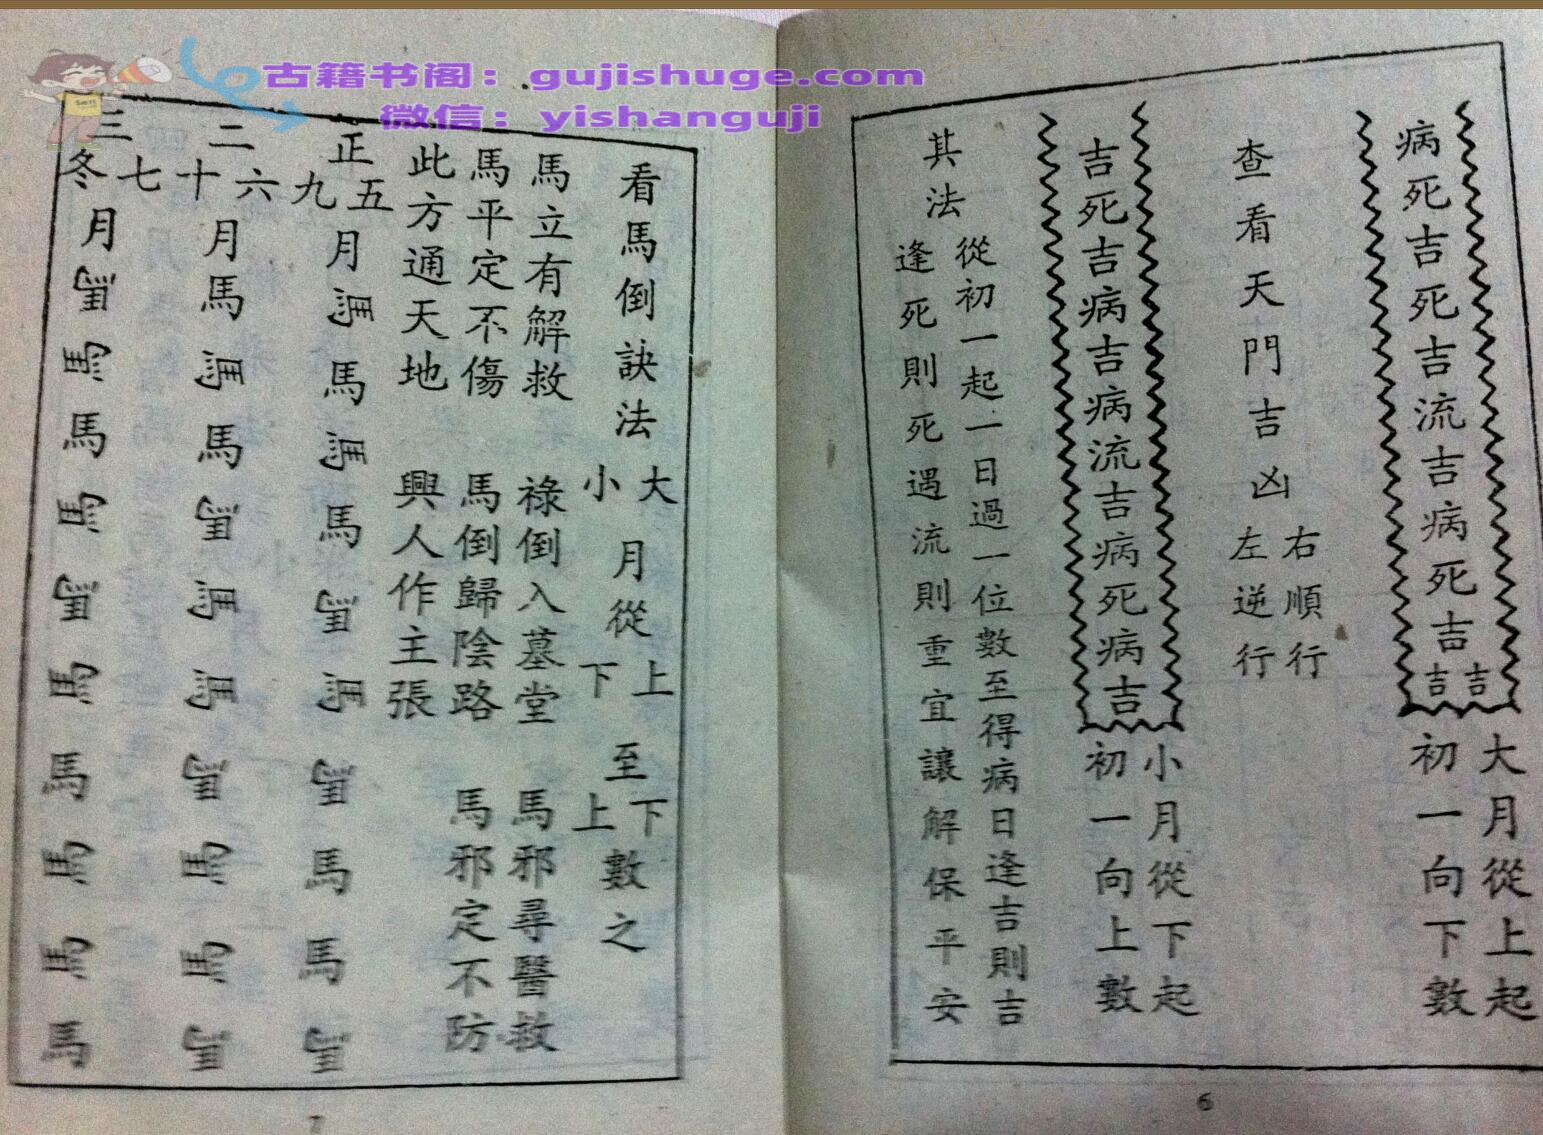 古籍书阁：gujishuge.com
微信：yishanguji
病死吉死吉流吉病死吉吉吉
大月從上起
初一向下數
查看天門吉凶
右順行
左逆行
吉死吉病吉病流吉病死病吉
小月從下起
初一向上數
其法
從初一起一日過一位數至得病日逢吉則吉
逢死則死遇流則重宜讓解保平安
6
看馬倒訣法大小月從上下至下上數之
馬立有解救 祿倒入墓堂 馬邪尋醫救
馬平定不傷 馬倒歸陰路 馬邪定不防
此方通天地 興人作主張
正五九月馬馬馬馬馬馬馬馬馬馬
二六十月馬馬馬馬馬馬馬馬馬馬
三七冬月馬馬馬馬馬馬馬馬馬馬
7